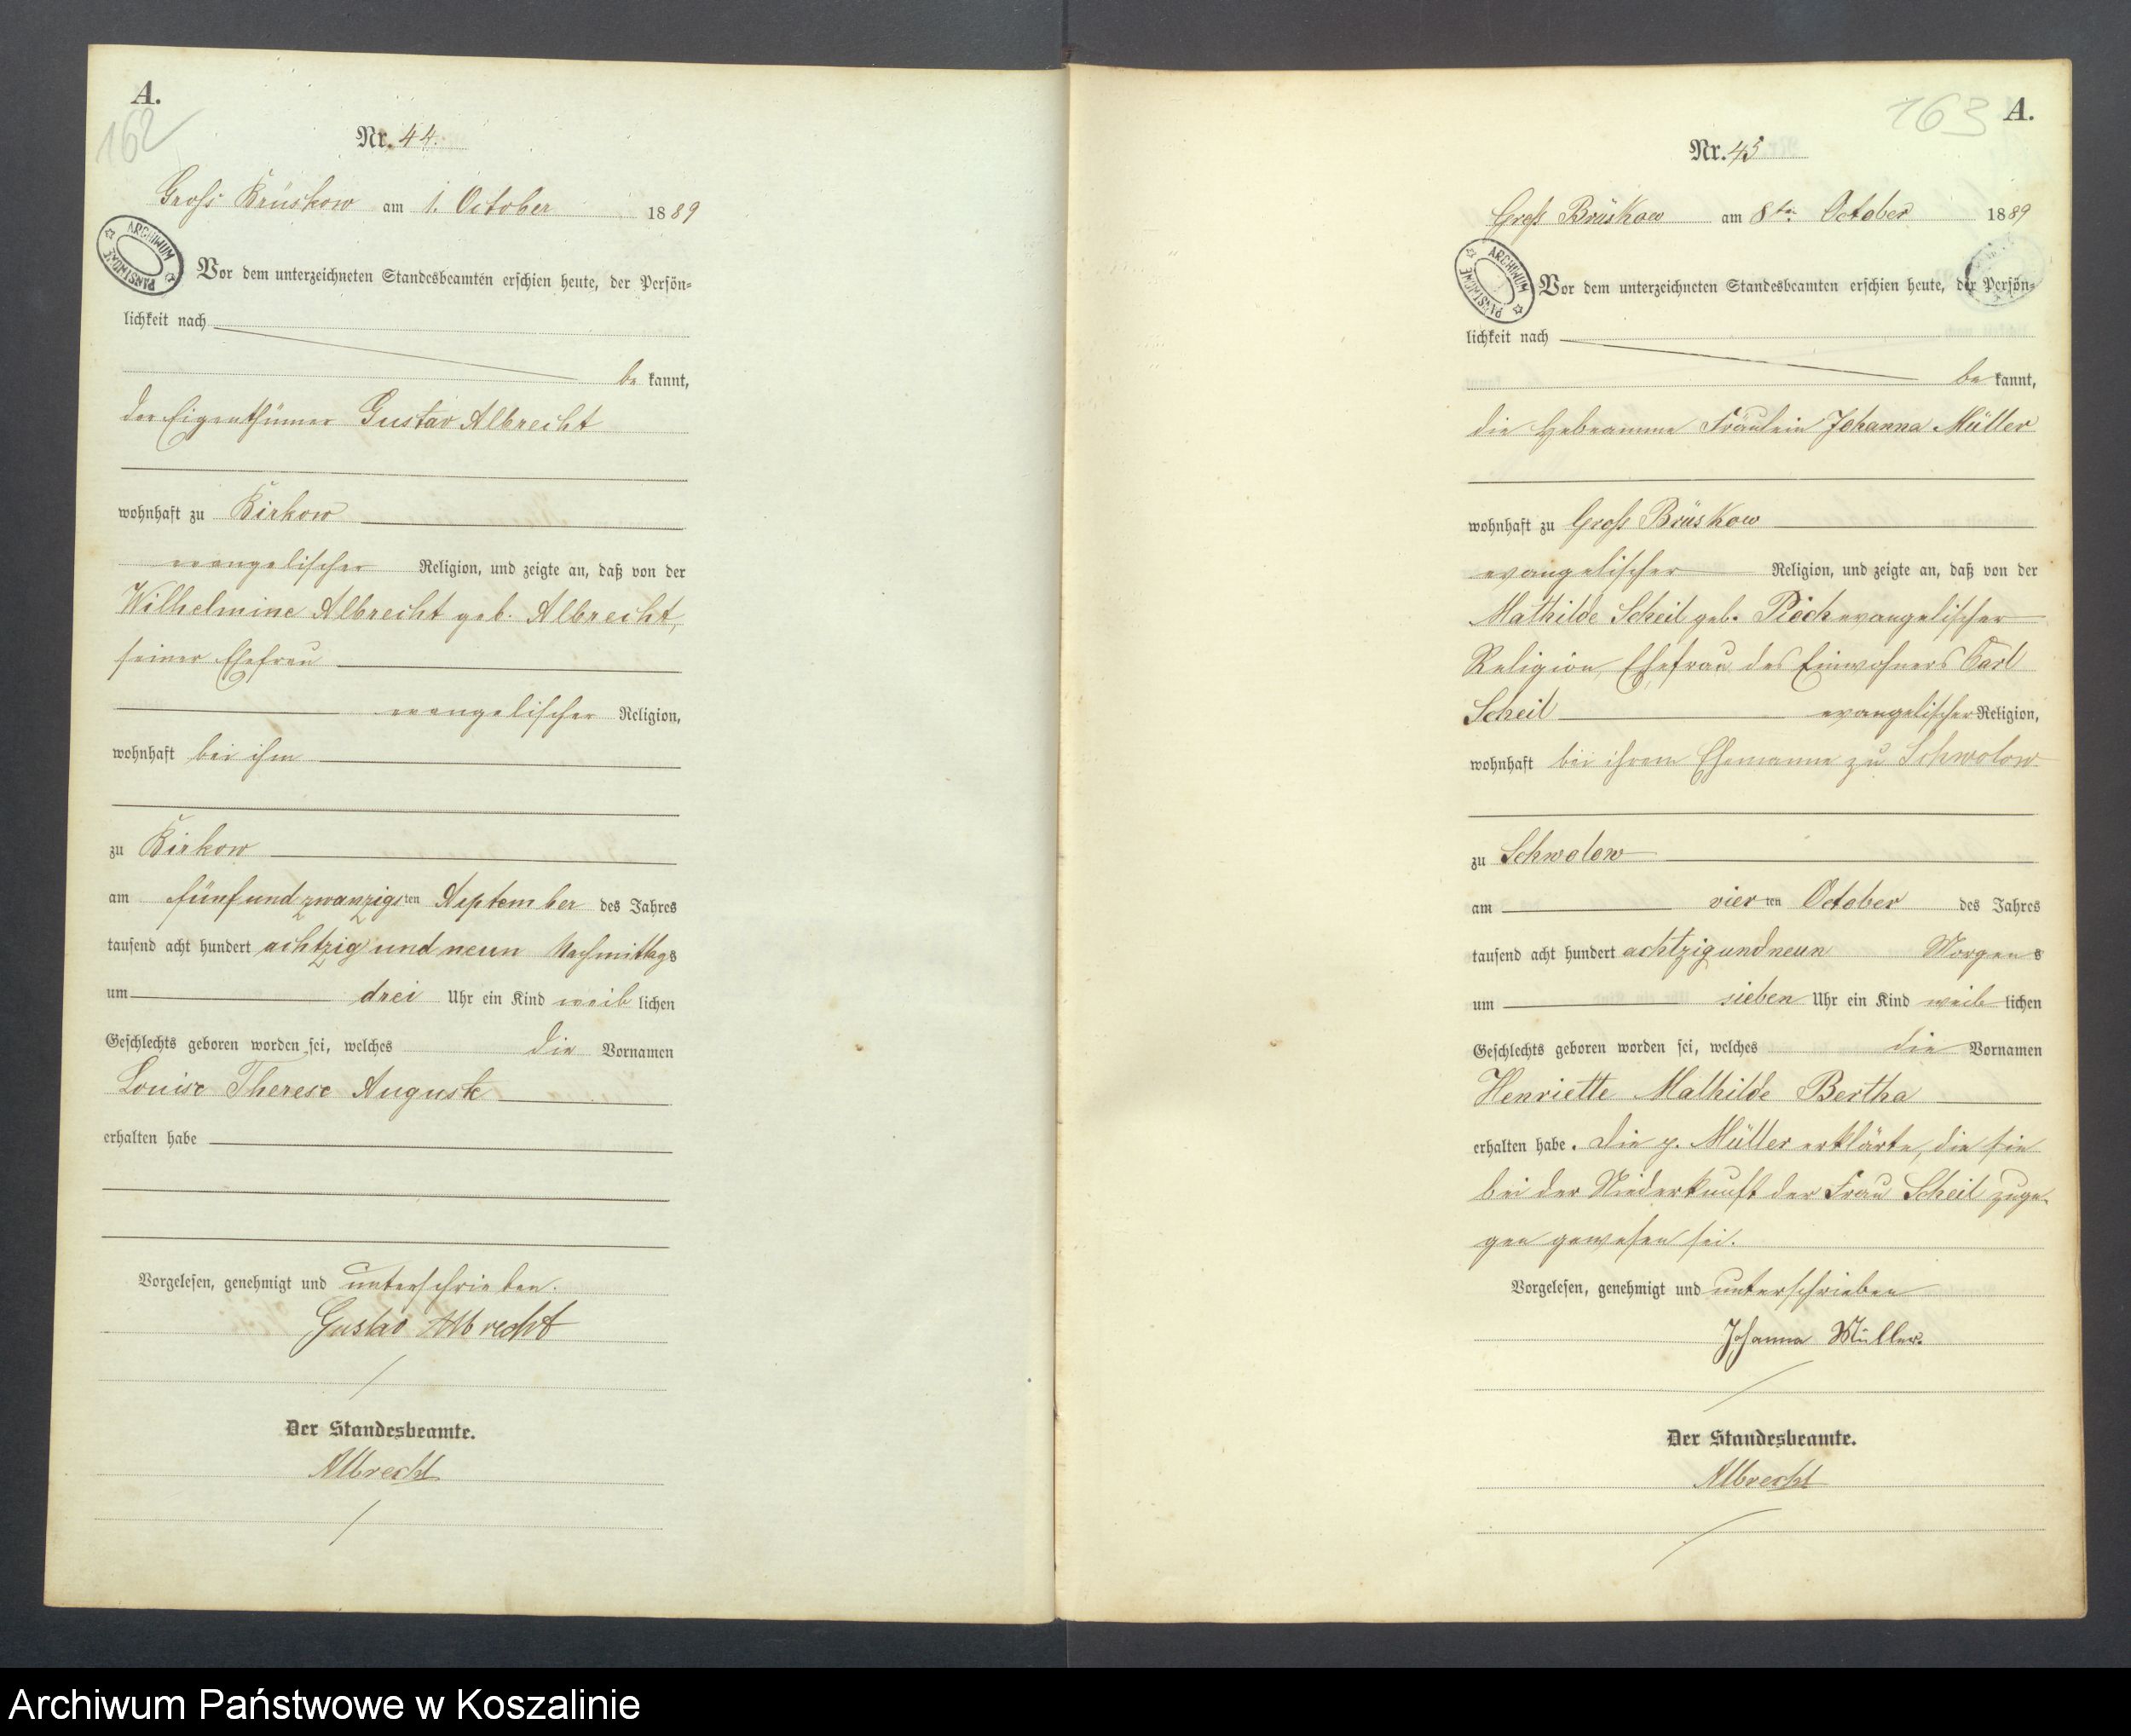 A.
162
Nr. 44.
Groß Brüskow am 1. October 1889
ARCHIWUM PAŃSTWOWE
Vor dem unterzeichneten Standesbeamten erschien heute, der Persön=
lichkeit nach
be kannt,
der Eigenthümer Gustav Albrecht
wohnhaft zu Birkow
evangelischer Religion, und zeigte an, daß von der
Wilhelmine Albrecht geb. Albrecht,
seiner Ehefrau
evangelischer Religion,
wohnhaft bei ihm
zu Birkow
am fünfundzwanzigsten September des Jahres
tausend acht hundert achtzig und neun Nachmittags
um drei Uhr ein Kind weib lichen
Geschlechts geboren worden sei, welches die Vornamen
Louise Therese Auguste
erhalten habe
Vorgelesen, genehmigt und unterschrieben.
Gustav Albrecht
Der Standesbeamte.
Albrecht
163 A.
Nr. 45
Groß Brüskow am 8ten October 1889
ARCHIWUM PAŃSTWOWE
Vor dem unterzeichneten Standesbeamten erschien heute, der Persön=
lichkeit nach
be kannt,
die Hebeamme Fräulein Johanna Müller
wohnhaft zu Groß Brüskow
evangelischer Religion, und zeigte an, daß von der
Mathilde Scheil geb. Piech evangelischer
Religion, Ehefrau des Einwohners Carl
Scheil evangelischer Religion,
wohnhaft bei ihrem Ehemanne zu Schwolow
zu Schwolow
am vier ten October des Jahres
tausend acht hundert achtzig und neun Morgens
um sieben Uhr ein Kind weib lichen
Geschlechts geboren worden sei, welches die Vornamen
Henriette Mathilde Bertha
erhalten habe. Die p. Müller erklärte, die sie
bei der Niederkunft der Frau Scheil zuge-
gen gewesen sei.
Vorgelesen, genehmigt und unterschrieben
Johanna Müller.
Der Standesbeamte.
Albrecht
Archiwum Państwowe w Koszalinie